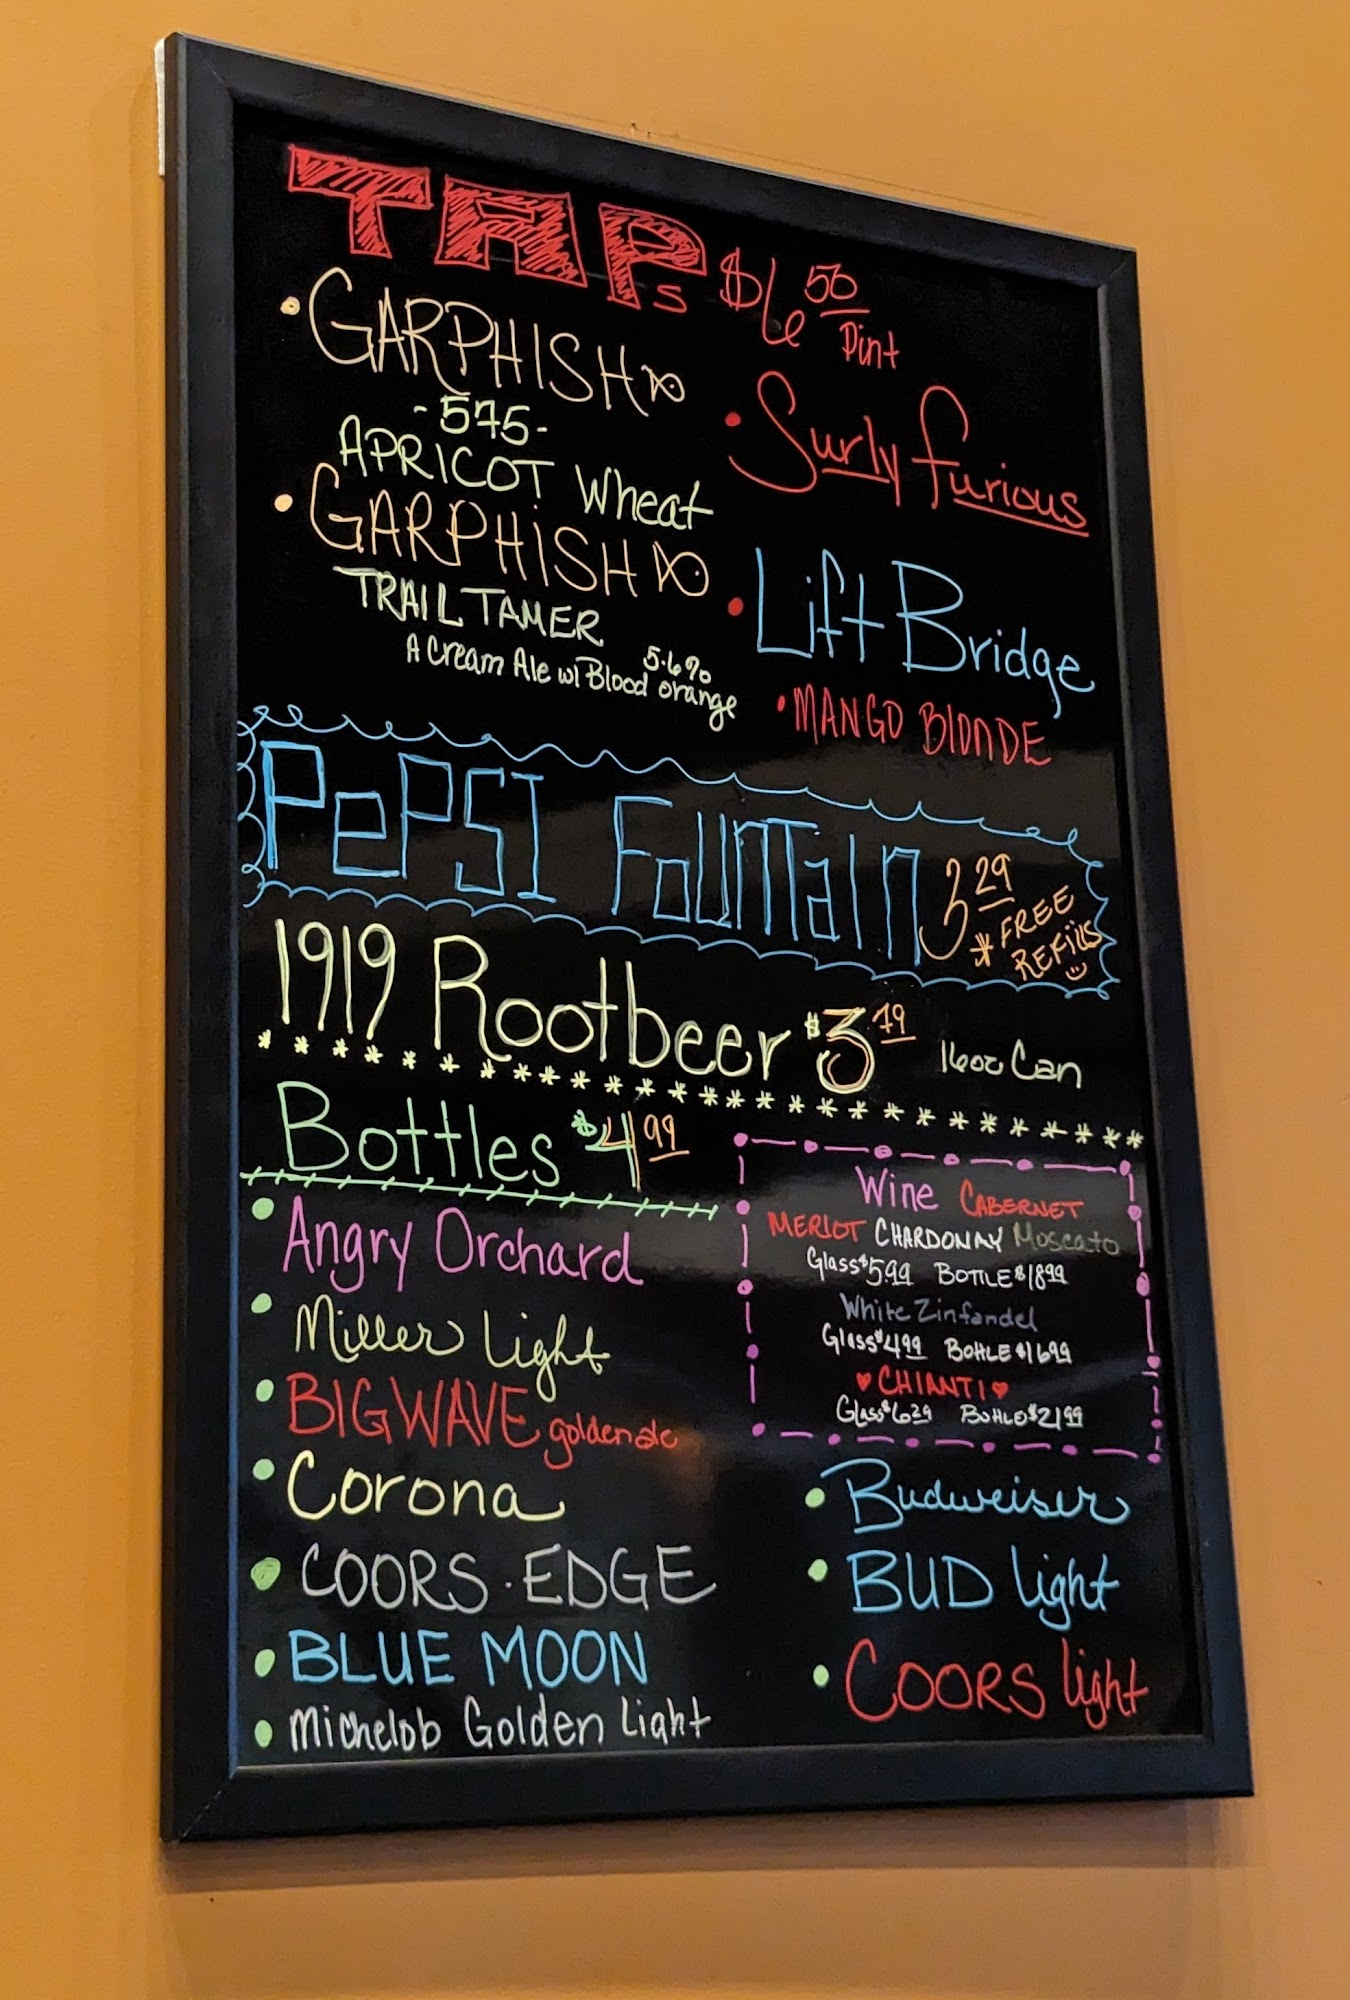 TAPs $6.50 Pint
• GARPHISH
-575-
APRICOT Wheat
• GARPHISH
TRAIL TAMER
A Cream Ale w/ Blood orange 5.6%
• Surly furious
• Lift Bridge
• MANGO BlONDE
PePSI FounTaIn 3.29
* FREE REFillS
1919 Rootbeer $3.79 16oz Can
* * * * * * * * * * * * * * * * * * * * * * * * * * * *
Bottles $4.99
• Angry Orchard
• Miller Light
• BIG WAVE golden ale
• Corona
• COORS • EDGE
• BLUE MOON
• Michelob Golden Light
Wine CABERNET
MERLOT CHARDONAY Moscato
Glass $5.99 BOTTLE $18.99
White Zinfandel
Glass $4.99 BottLE $16.99
♥ CHIANTI ♥
Glass $6.29 Bottle $21.99
• Budweiser
• BUD light
• COORS light